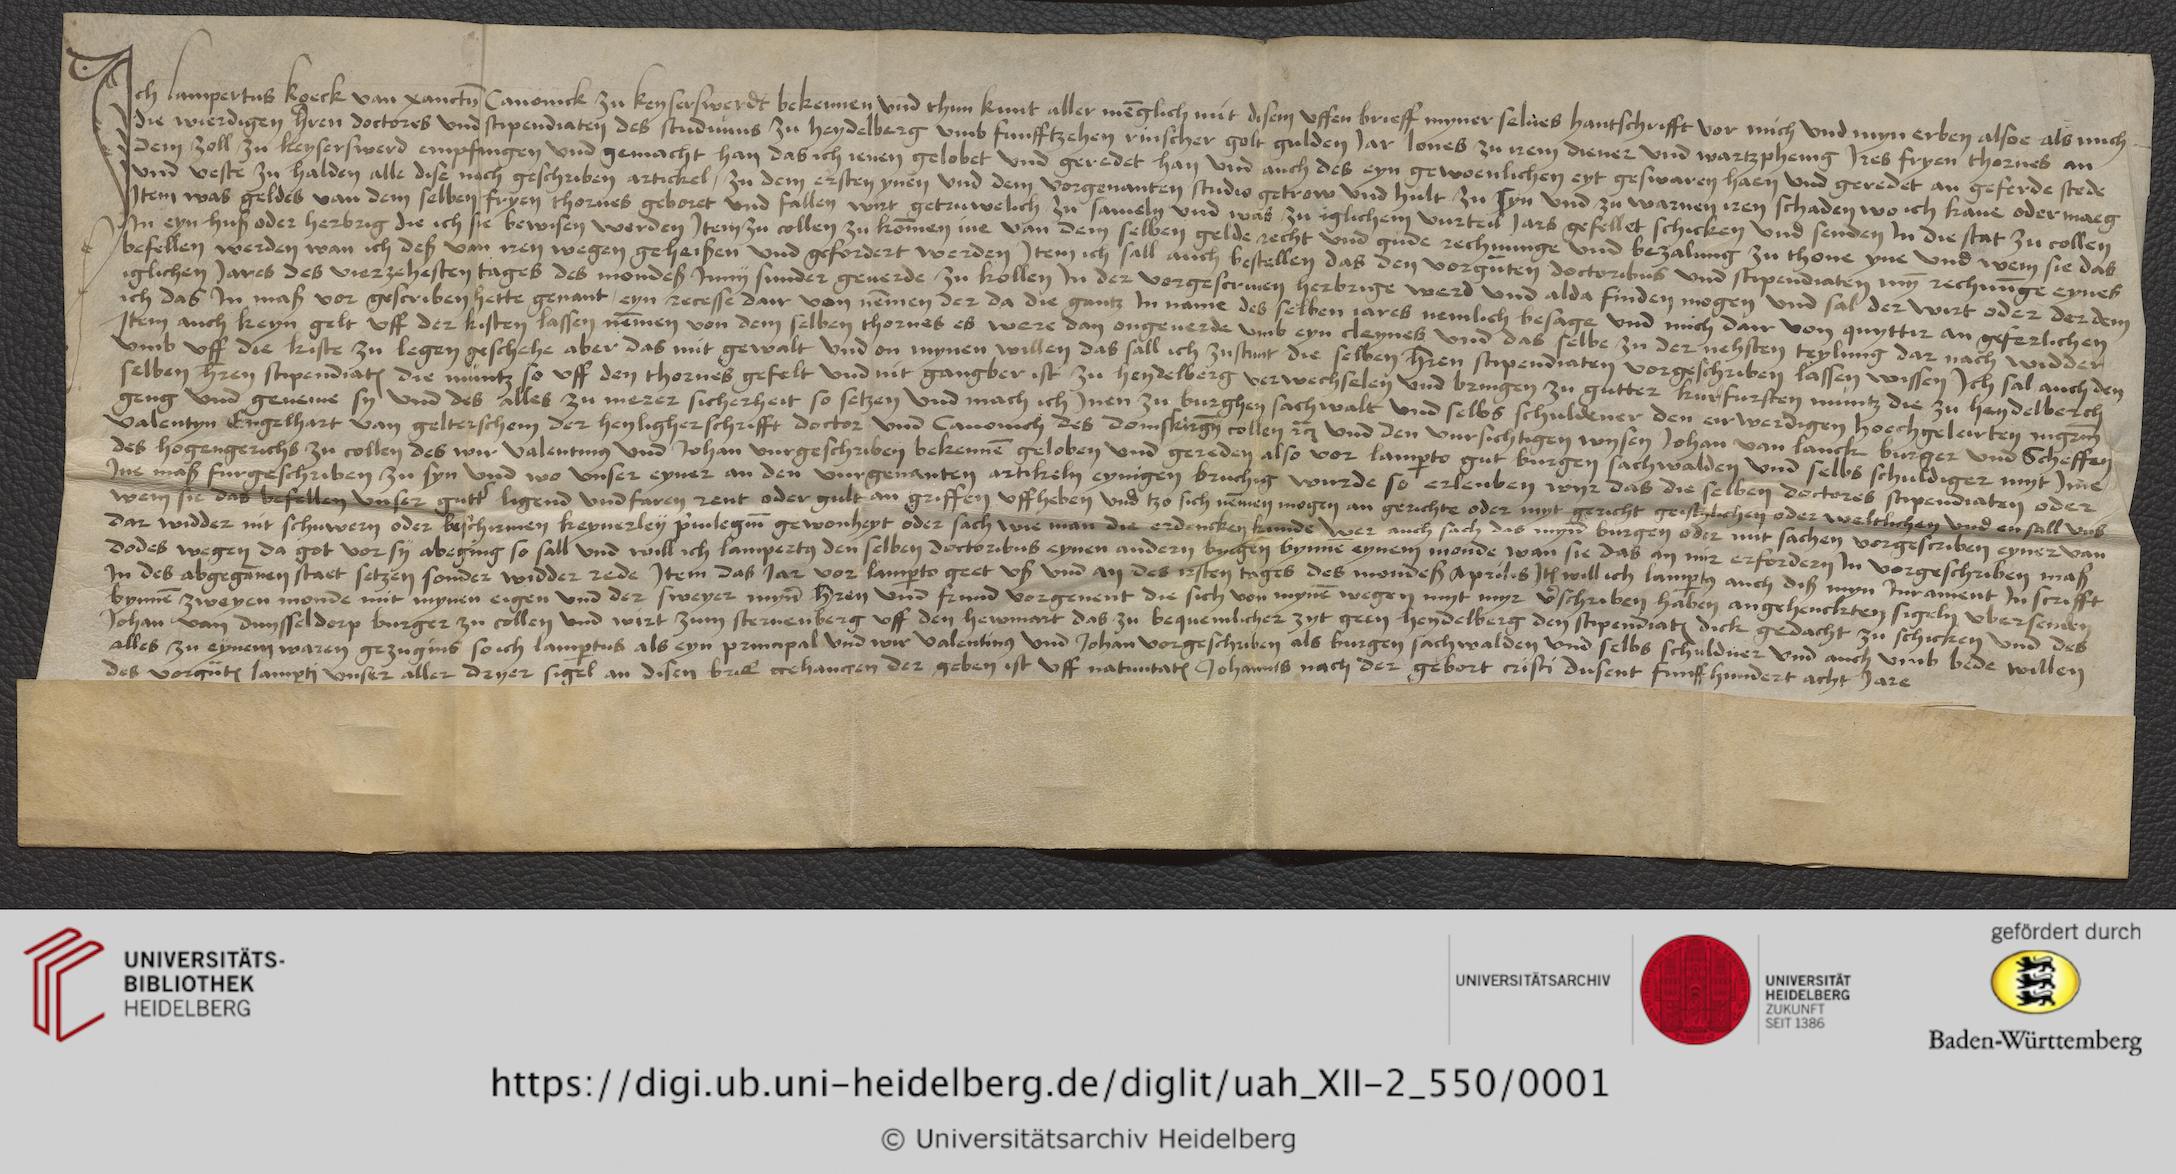 Ich lampertus koeck van xanctñ Canonick zu keyserswerdt bekennen vnd thun kunt aller mēglich mit disem vffen brieff myner selues hantschrifft vor mich vnd myn erben alsoe als mich
die wierdigen hren doctores vnd stipendiaten des studiums zu heydelberg vmb funfftzehen rinscher golt gulden Jar lones zu irem diener vnd wartzphenig Jres fryen thornes an
dem zoll zu keyserswerd empfangen vnd gemacht han das ich ienen gelobet vnd geredet han vnd auch des eyn gewoenlichen eyt geswaren haen vnd geredet an geferde stede
vnd veste zu halden alle dise nach geschriben artickel zu dem ersten ynen vnd dem vorgenanten studio getrow vnd hult zu syn vnd zu warnen iren schaden wo ich kane oder maeg
Item was geldes van dem selben fryen thornes geboret vnd fallen wirt getruwelich zu sameln vnd was zu iglichem vurteil Jars gefellet schicken vnd senden In die stat zu collen
In eyn huß oder herbrig die ich sie bewisen werden Item zu collen zu komen ine van dem selben gelde recht vnd gude rechnunge vnd bezalung zu thone yne vnd wem sie das
befellen werden wan ich deß van iren wegen geheißen vnd gefordert werden Item ich sall auch bestellen das den vorgñten doctoribus vnd stipendiaten myn rechnunge eynes
iglichen Jares des vierzehesten tages des mondeß Junij sunder geuerde zu kollen In der vorgescriuen herbrige werd vnd alda finden mogen vnd sal der wirt oder der dem
ich das In maß vor gescriben hette genant eyn recesse dair von nemen der da die gantz In name des selben iares nemlich besage vnd mich dair von quyttir an geferlichen
Item auch keyn gelt vff der kisten lassen nemen von dem selben thornes es were dan ongeuerde vmb eyn cleynes vnd das selbe zu der nehsten teylung dar nach widder
vmb vff die kiste zu legen geschehe aber das mit gewalt vnd on mynen willen das sall ich zustunt die selben hren stipendiaten vorgeschriben lassen wissen Ich sal auch den
selben hren stipendiatē die muntz so vff den thornes gefelt vnd nit gangber ist zu heydelberg verwechselen vnd bringen zu gutter kurfursten muntz die zu heydelberch
geng vnd geneme sy vnd des alles zu merer sicherheit so setzen vnd mach ich Inen zu burghen sachwalt vnd selbs schuldener den eirwerdigen hoechgeleirten mgrm
Valentyn Engelhart van gelterschem der heyligher schrifft doctor vnd Canonich des domskirgen collen vnd den vursichtigen wysen Johan van lanck burger vnd Scheffen
des hogengerichs zu collen des wir Valentinus vnd Johan vurgeschriben bekennē geloben vnd gereden also vor lamperto gut burgen sachwalden vnd selbs schuldiger myt Ime
Ine maß furgeschriben zu syn vnd wo vnser eyner an den vurgenanten artikeln eynigen bruchig wurde so erleuben wyr das die selben doctores stipendiaten oder
wem sie das befellen vnser gutt ligend vnd faren rent oder gult an griffen vffheben vnd tzo sich nemen mogen an gerichte oder myt gericht geistlichen oder weltlichen vnd en sall vns
dar widder nit schuwern oder beschirmen keynerley priuilegium gewonheyt oder sach wie man die erdencken kunde Wer auch sach das myner burgen oder mit sachen vorgescriben eyner van
dodes wegen da got vor sy abeging so sall vnd will ich lampertus den selben doctoribus eynen andern burgen bynne eynem monde wan sie das an mir erfordern In vorgeschriben maß
In des abgegānen staet setzen sonder widder rede Item das Jar vor lamperto geet vß vnd an des irsten tages des mondeß Aprilis Itē will ich lampertus auch diß myn Jurament In scrifft
bynnē zweyen monde mit mynen eigen vnd der sweyer mynr hren vnd frund vorgenent die sich von myne wegen myt myr v̄schriben haben angehenckten sigeln vbersenden
Johan van dunsseldorp burger zu collen vnd wirt zum sternenberg vff den hewmart das zu bequemlicher zyt geen heydelberg den stipendiatē dick gedacht zu schicken vnd des
alles zu eynem waren gezugnis so ich lampertus als eyn principal vnd wir Valentinus vnd Johan vorgeschriben als burgen sachwalden vnd selbs schuldner vnd auch vmb bede willen
des vorgñtē lamperti vnser aller dryer sigel an disen brieff gehangen der geben ist vff natiuitatē Johannis nach der gebort cristi dusent funffhundert acht Jare
UNIVERSITÄTS-
BIBLIOTHEK
HEIDELBERG
UNIVERSITÄTSARCHIV
UNIVERSITÄT
HEIDELBERG
ZUKUNFT
SEIT 1386
gefördert durch
Baden-Württemberg
https://digi.ub.uni-heidelberg.de/diglit/uah_XII-2_550/0001
© Universitätsarchiv Heidelberg